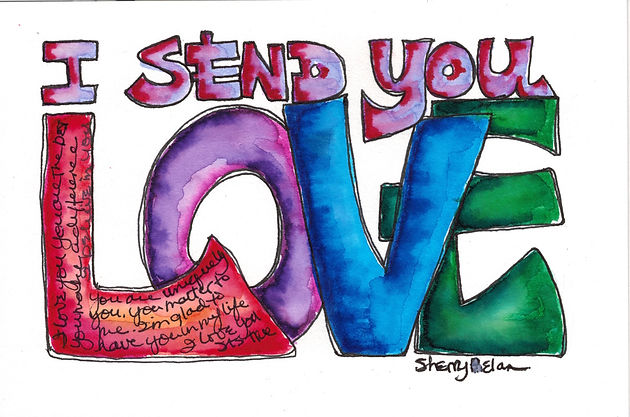 I SEND YOU
LOVE
I love you you are the best
you make a difference
you are uniquely
you. you matter to
me. I'm glad to
have you in my life
I love you
it's true
Sherry